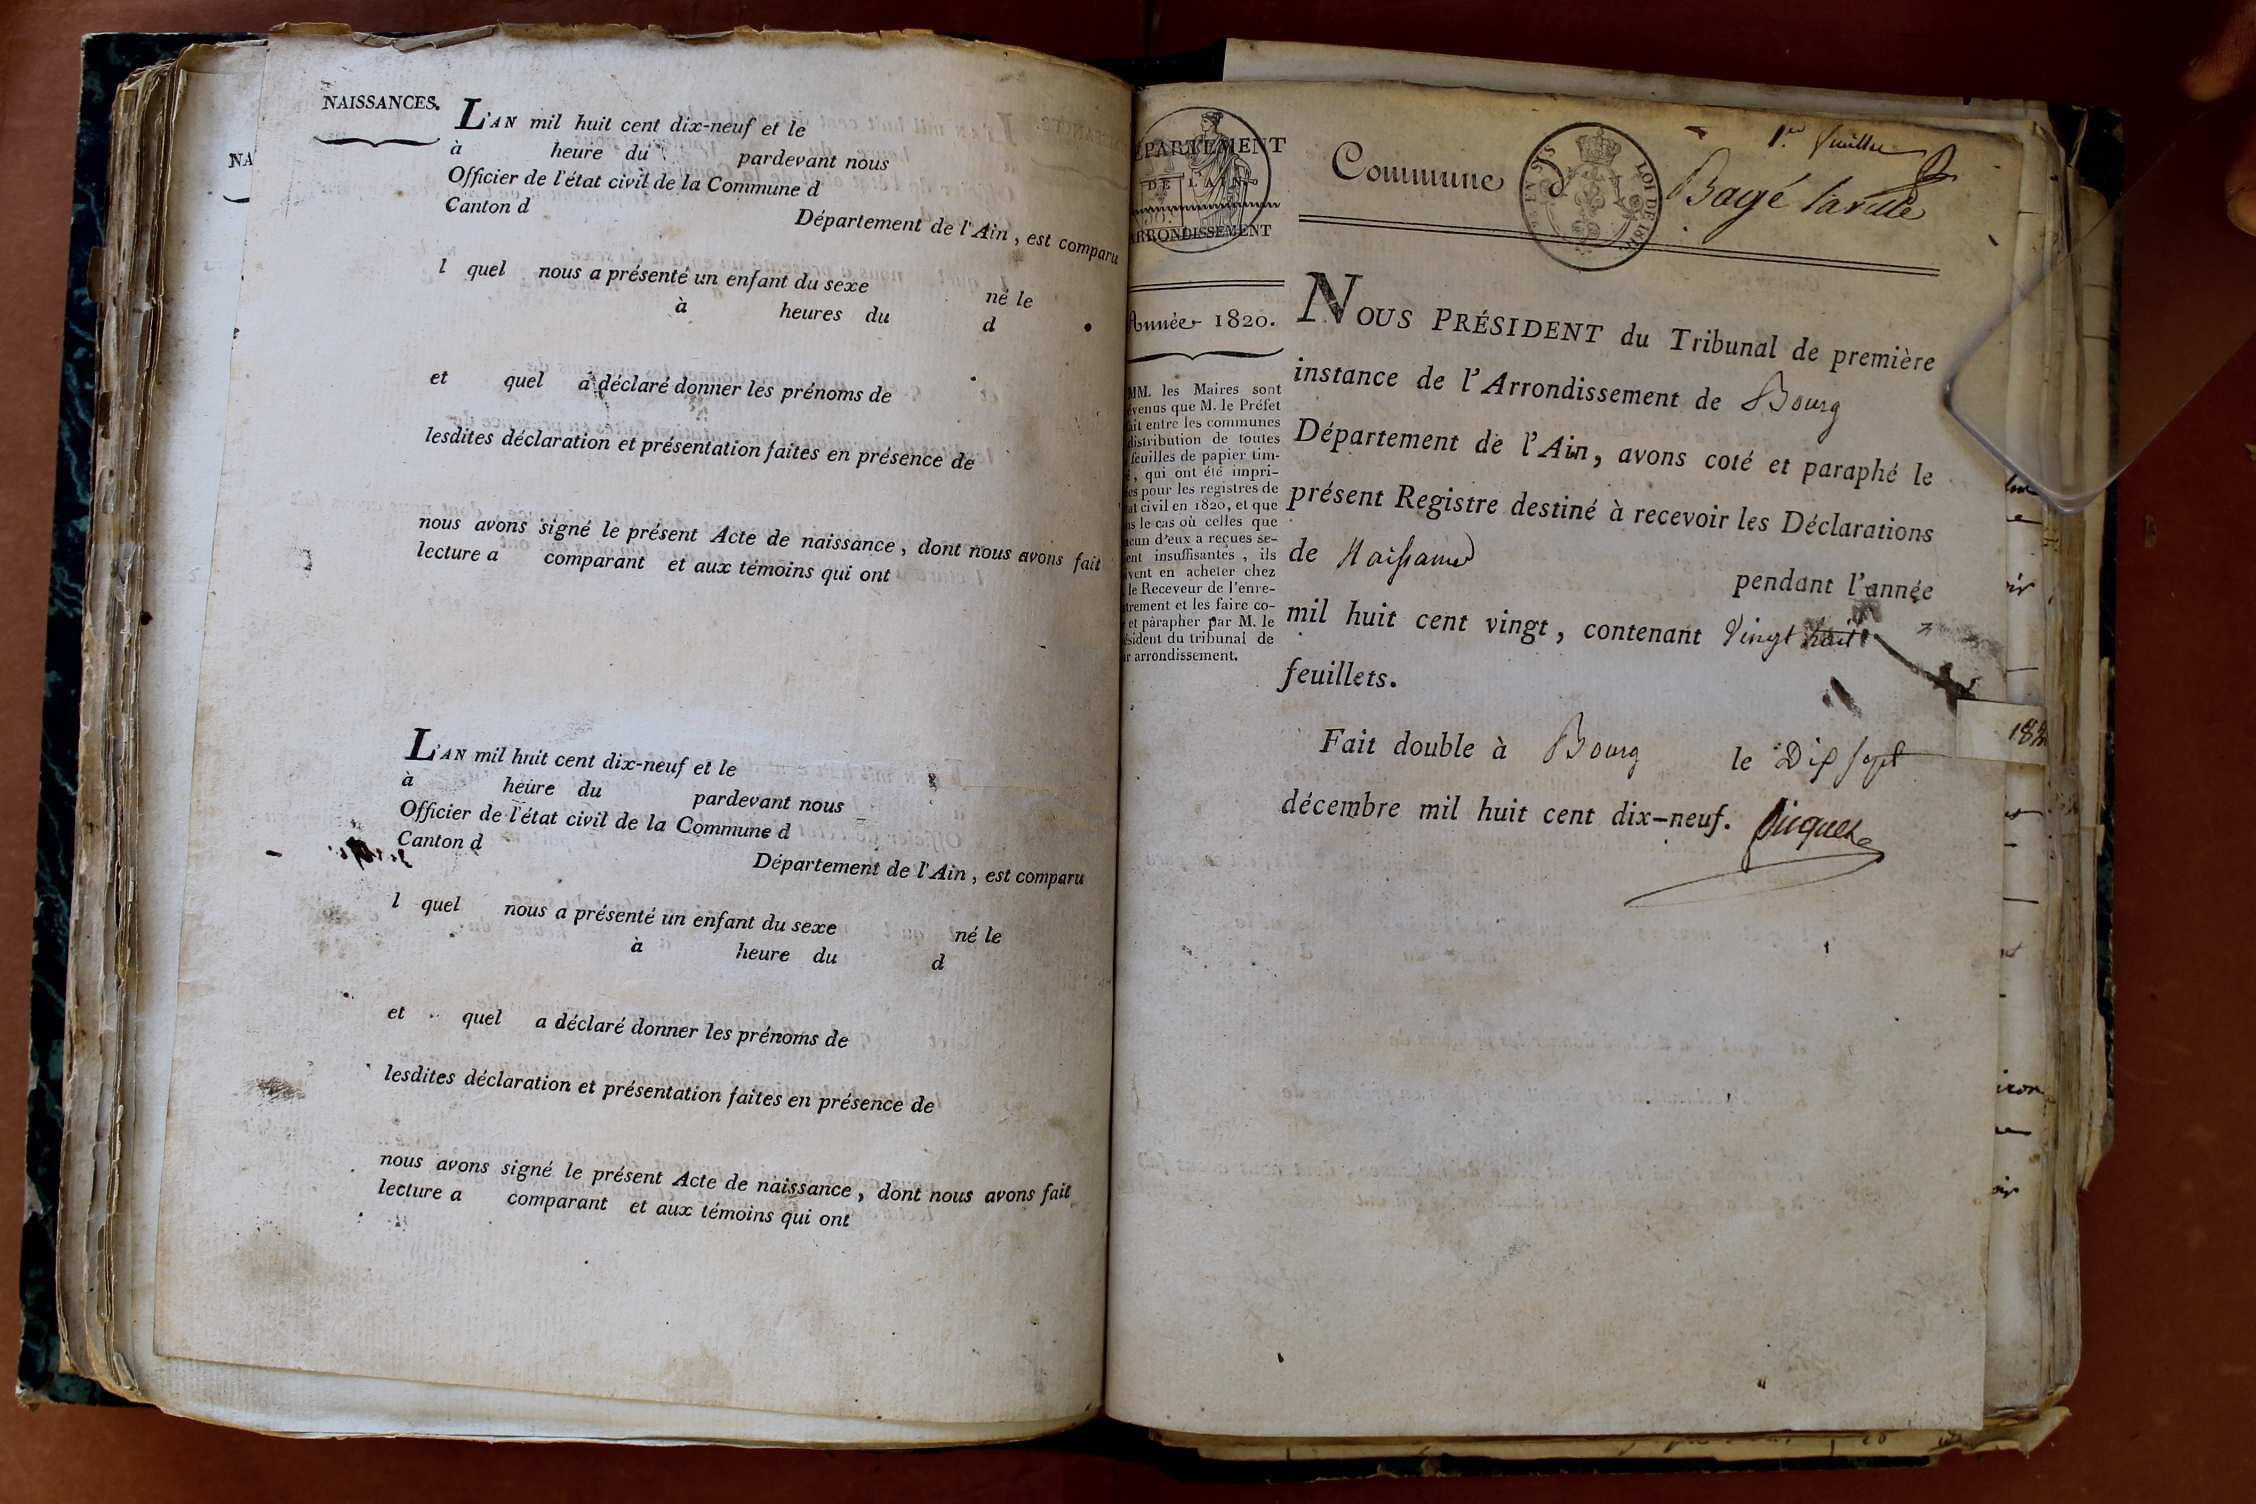 NAISSANCES.
NA
L'AN mil huit cent dix-neuf et le
à heure du pardevant nous
Officier de l'état civil de la Commune d
Canton d
Département de l'Ain, est comparu
l quel nous a présenté un enfant du sexe
né le
à heures du d
et quel a déclaré donner les prénoms de
lesdites déclaration et présentation faites en présence de
nous avons signé le présent Acte de naissance, dont nous avons fait
lecture a comparant et aux témoins qui ont
L'AN mil huit cent dix-neuf et le
à heure du pardevant nous
Officier de l'état civil de la Commune d
Canton d
Département de l'Ain, est comparu
l quel nous a présenté un enfant du sexe
né le
à heure du d
et quel a déclaré donner les prénoms de
lesdites déclaration et présentation faites en présence de
nous avons signé le présent Acte de naissance, dont nous avons fait
lecture a comparant et aux témoins qui ont
ÉPARTEMENT
DE L'AIN
ARRONDISSEMENT
Année 1820.
MM. les Maires sont
évenus que M. le Préfet
ait entre les communes
distribution de toutes
feuilles de papier tim-
é, qui ont été impri-
es pour les registres de
at civil en 1820, et que
ns le cas où celles que
acun d'eux a reçues se-
ent insuffisantes, ils
ivent en acheter chez
le Receveur de l'enre-
trement et les faire co-
et parapher par M. le
ésident du tribunal de
ur arrondissement.
1er feuillet
Commune d Bagé la ville
LOI DE 1816
NOUS PRÉSIDENT du Tribunal de première
instance de l'Arrondissement de Bourg
Département de l'Ain, avons coté et paraphé le
présent Registre destiné à recevoir les Déclarations
de Naissance
pendant l'année
mil huit cent vingt, contenant Vingt huit
feuillets.
Fait double à Bourg le Dix sept
décembre mil huit cent dix-neuf. Picquet